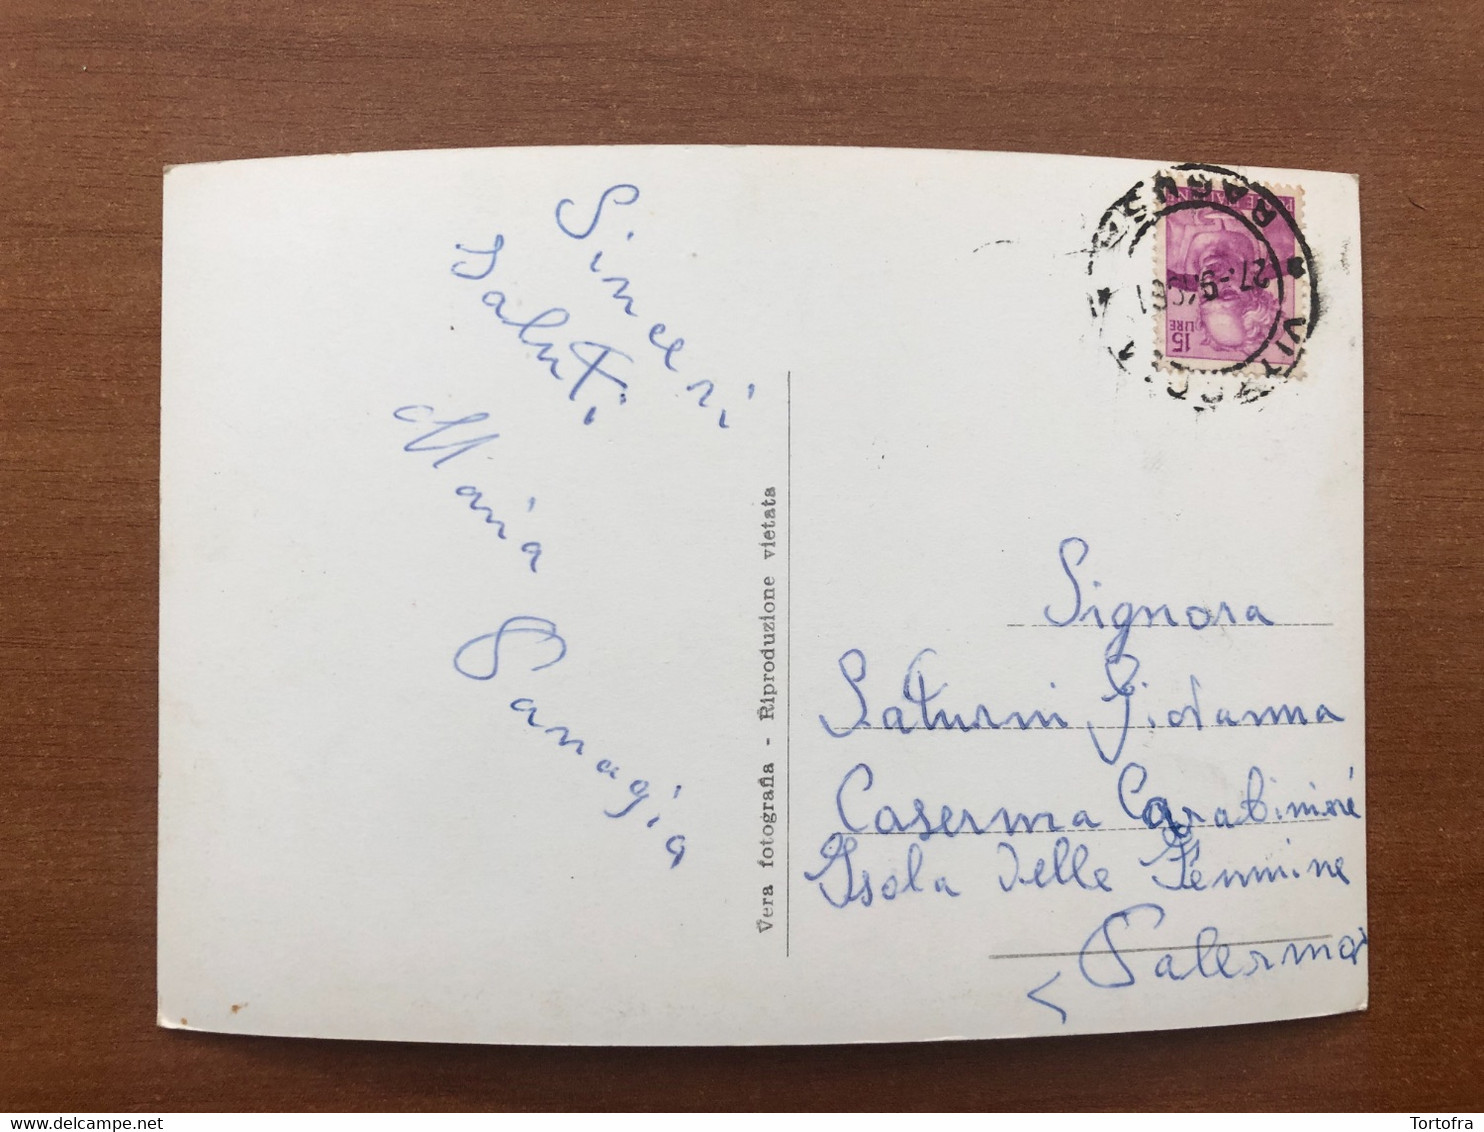 Sinceri
Saluti
Maria
Panagia
Vera fotografia - Riproduzione vietata
POSTE ITALIANE
15
LIRE
RAGUSA
27.-9.1961
Signora
Saturni Giovanna
Caserma Carabinieri
Isola delle Femmine
Palermo
Tortofra